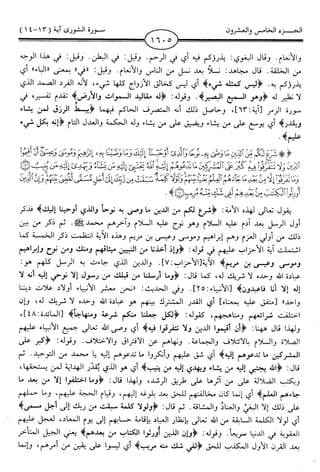 الجــزء الخامس والعشرون
١٦٠٥
سورة الشورى آية (١٣-١٤)
والأنعام. وقال البغوي: يذرؤكم فيه أي في الرحم. وقيل: في البطن. وقيل: في هذا الوجه
من الخلقة. قال مجاهد: نسلاً بعد نسل من الناس والأنعام. وقيل: «في» بمعنى «الباء» أي
يذرؤكم به. ﴿ليس كمثله شيء﴾ أي ليس كخالق الأزواج كلها شيء، لأنه الفرد الصمد الذي
لا نظير له ﴿وهو السميع البصير﴾. وقوله: ﴿له مقاليد السموات والأرض﴾ تقدم تفسيره في
سورة الزمر [آية: ٦٣]، وحاصل ذلك أنه المتصرف الحاكم فيهما ﴿يبسط الرزق لمن يشاء
ويقدر﴾ أي يوسع على من يشاء ويضيق على من يشاء وله الحكمة والعدل التام ﴿إنه بكل شيء
عليم﴾.
يقول تعالى لهذه الأمة: ﴿شرع لكم من الدين ما وصى به نوحاً والذي أوحينا إليك﴾ فذكر
أول الرسل بعد آدم عليه السلام وهو نوح عليه السلام وآخرهم محمد ﷺ. ثم ذكر من بين
ذلك من أولي العزم وهم إبراهيم وموسى وعيسى بن مريم وهذه الآية انتظمت ذكر الخمسة كما
اشتملت آية الأحزاب عليهم في قوله: ﴿وإذ أخذنا من النبيين ميثاقهم ومنك ومن نوح وإبراهيم
وموسى وعيسى بن مريم﴾ الآية[الأحزاب: ٧]. والدين الذي جاءت به الرسل كلهم هو:
عبادة الله وحده لا شريك له، كما قال: ﴿وما أرسلنا من قبلك من رسول إلا نوحي إليه أنه لا
إله إلا أنا فاعبدون﴾ [الأنبياء: ٢٥]. وفي الحديث: «نحن معشر الأنبياء أولاد علات ديننا
واحد» [متفق عليه بمعناه] أي القدر المشترك بينهم هو عبادة الله وحده لا شريك له، وإن
اختلفت شرائعهم ومناهجهم، كقوله: ﴿لكل جعلنا منكم شرعة ومنهاجاً﴾ [المائدة: ٤٨]،
ولهذا قال هنهنا: ﴿أن أقيموا الدين ولا تتفرقوا فيه﴾ أي وصى الله تعالى جميع الأنبياء عليهم
الصلاة والسلام بالائتلاف والجماعة. ونهاهم عن الافتراق والاختلاف. وقوله: ﴿كبر على
المشركين ما تدعوهم إليه﴾ أي شق عليهم وأنكروا ما تدعوهم إليه يا محمد من التوحيد. ثم
قال: ﴿الله يجتبي إليه من يشاء ويهدي إليه من ينيب﴾ أي هو الذي يُقدّر الهداية لمن يستحقها،
ويكتب الضلالة على من آثرها على طريق الرشد، ولهذا قال: ﴿وما اختلفوا إلا من بعد ما
جاءهم العلم﴾ أي إنما كان مخالفتهم للحق بعد بلوغه إليهم، وقيام الحجة عليهم، وما حملهم
على ذلك إلا البغيُ والعنادُ والمشاقة. ثم قال: ﴿ولولا كلمة سبقت من ربك إلى أجل مسمى﴾
أي لولا الكلمة السابقة من الله تعالى بإنظار العباد بإقامة حسابهم إلى يوم المعاد، لعجل عليهم
العقوبة في الدنيا سريعاً. وقوله: ﴿وإن الذين أورثوا الكتاب من بعدهم﴾ يعني الجيل المتأخر
بعد القرن الأول المكذب للحق ﴿لفي شك منه مريب﴾ أي ليسوا على يقين من أمرهم، وإنما